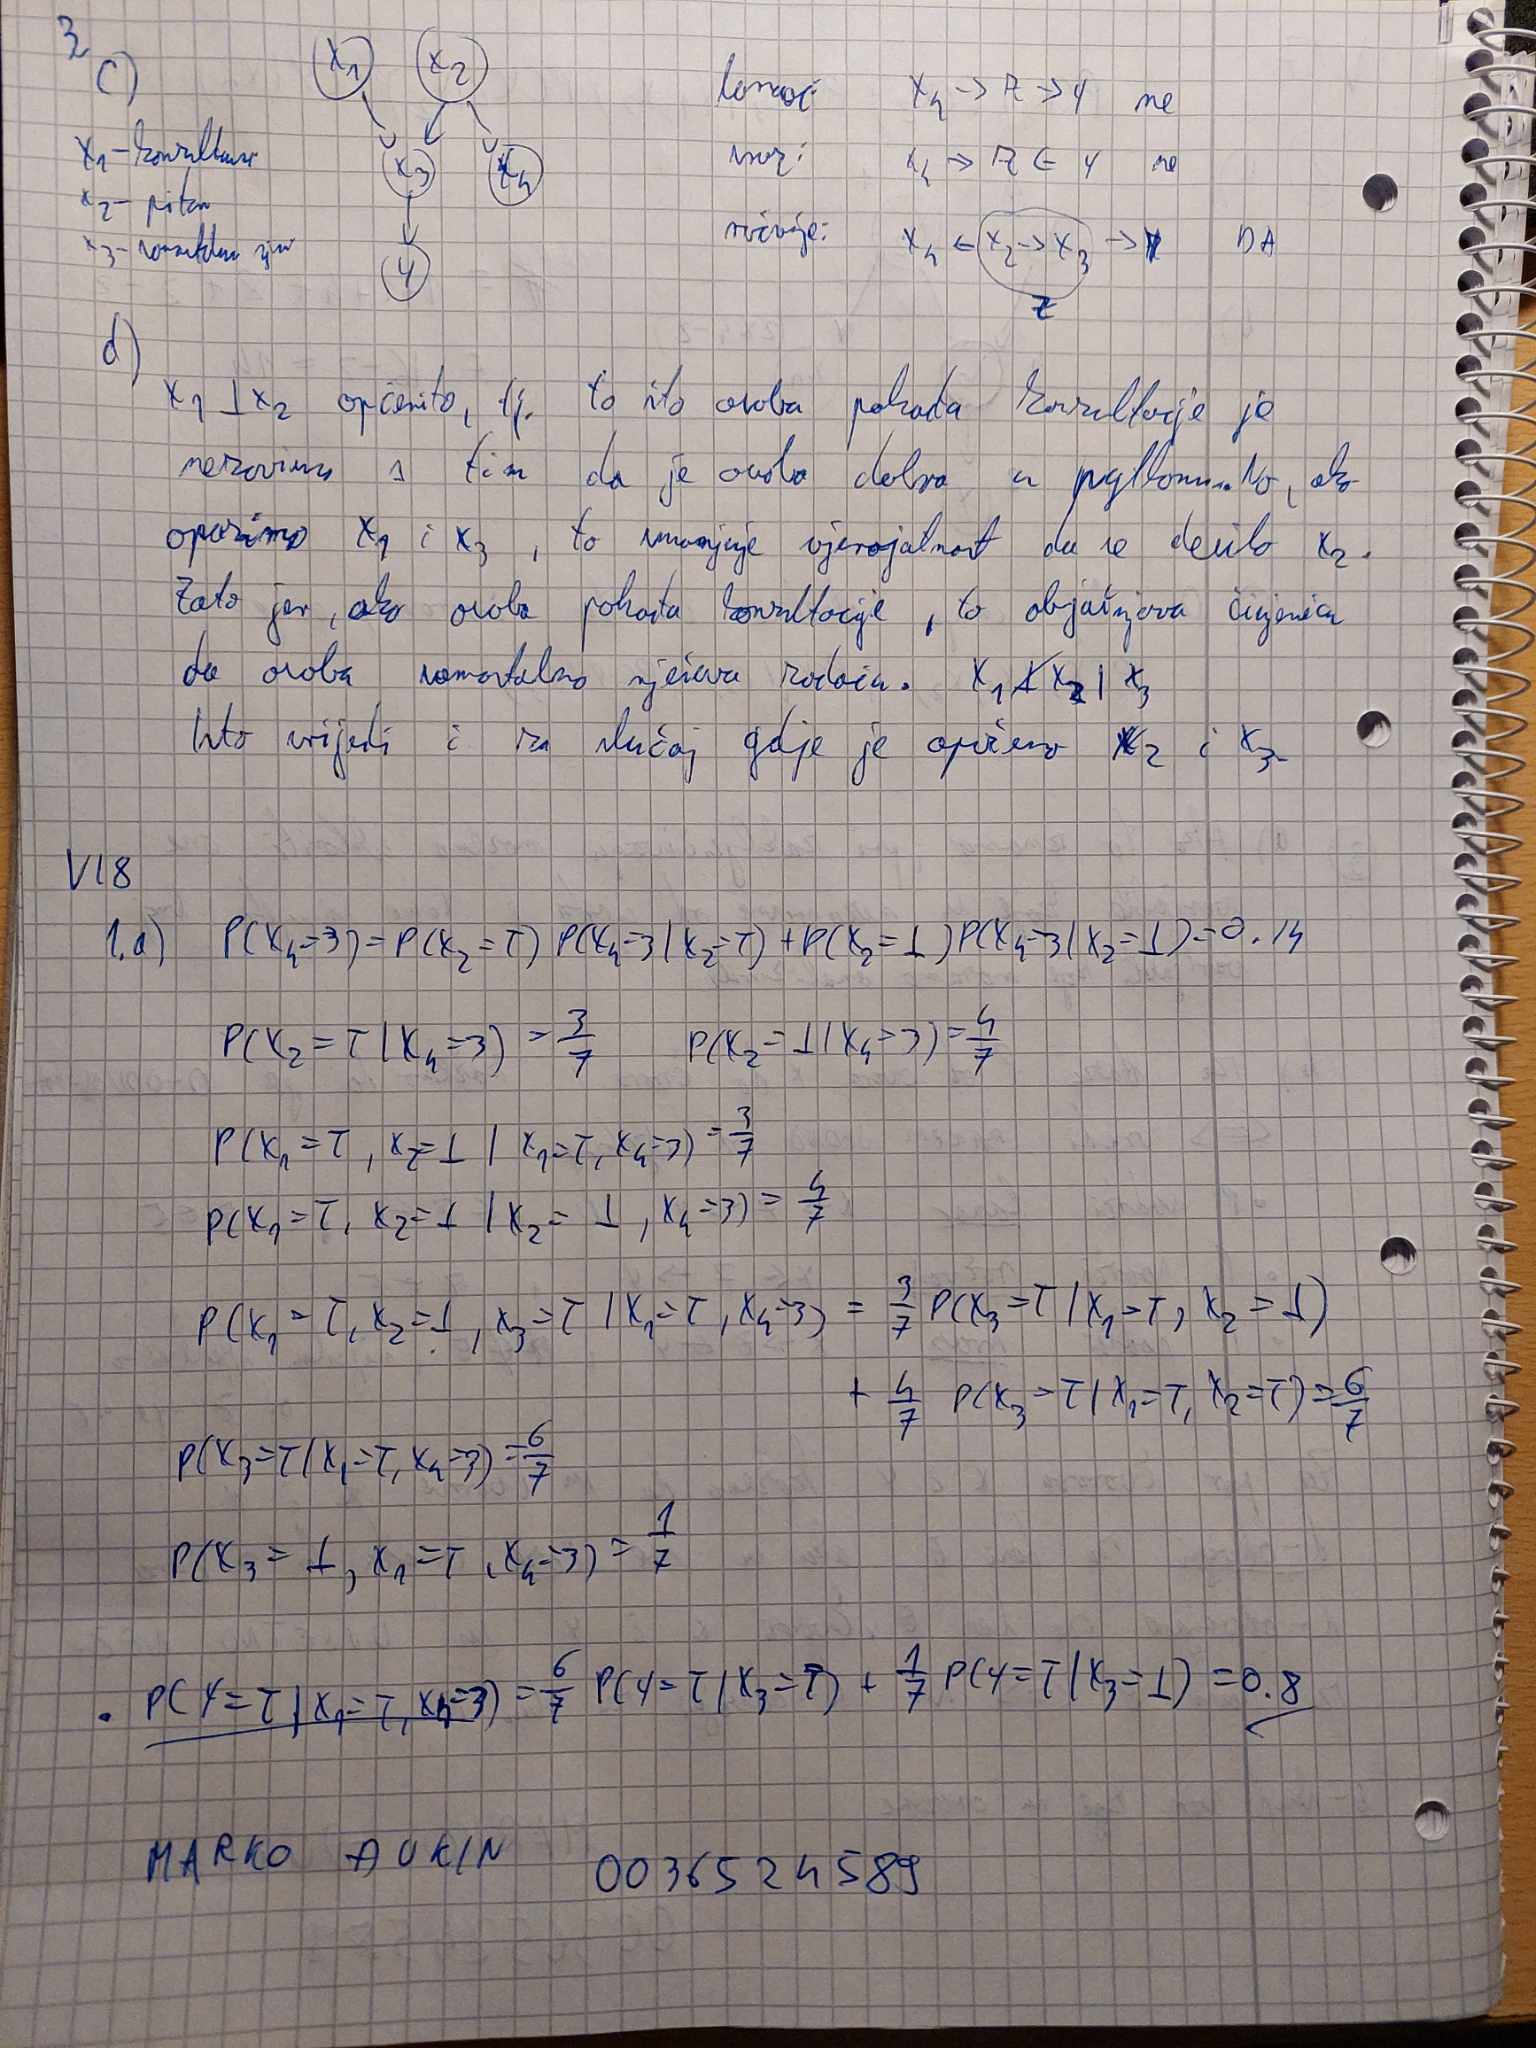 3
c)
x1 x2
x3 x4
Y
x1 - konzultacije
x2 - pitan
x3 -
lanac: x4 → Z → Y ne
x4 → Z ← Y ne
račvanje: x4 ← x2 → x3 → Y DA
Z
d)
x1 ⊥ x2 općenito, tj. to što osoba pohađa konzultacije je
s tim da je osoba dobra u No, ako
opazimo x1 i x3, to smanjuje vjerojatnost da se desilo x2.
Zato jer, ako osoba pohađa konzultacije, to objašnjava činjenicu
da osoba samostalno rješava zadaću. x1 ⊥̸ x2 | x3
Isto vrijedi i za slučaj gdje je opaženo x2 i x3.
V18
1.a) P(x4=3) = P(x2=T) P(x4=3|x2=T) + P(x2=⊥) P(x4=3|x2=⊥) = 0.14
P(x2=T|x4=3) = 3/7 P(x2=⊥|x4=3) = 4/7
P(x1=T, x2=⊥ | x1=T, x4=3) = 3/7
P(x1=T, x2=⊥ | x2=⊥, x4=3) = 4/7
P(x1=T, x2=⊥, x3=T | x1=T, x4=3) = 3/7 P(x3=T|x1=T, x2=⊥)
+ 4/7 P(x3=T|x1=T, x2=T) = 6/7
P(x3=T|x1=T, x4=3) = 6/7
P(x3=⊥, x1=T, x4=3) = 1/7
• P(Y=T|x1=T, x4=3) = 6/7 P(Y=T|x3=T) + 1/7 P(Y=T|x3=⊥) = 0.8
MARKO 0036524589